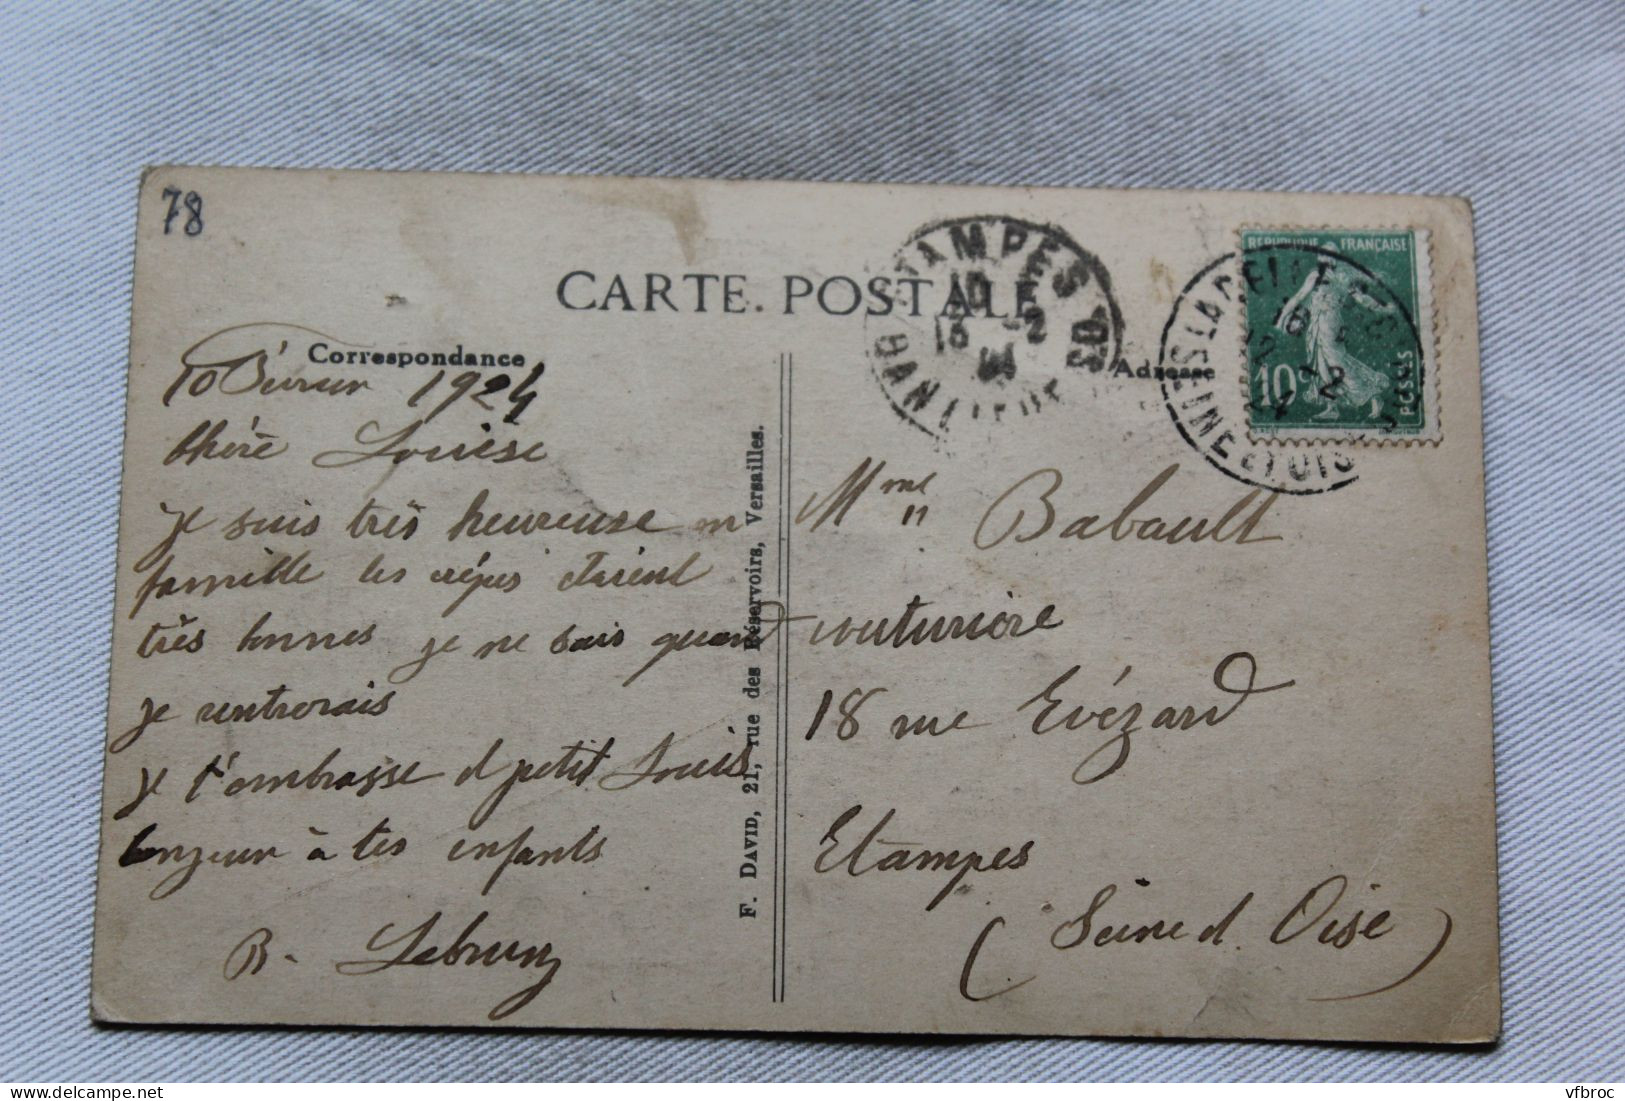 78
CARTE POSTALE
Correspondance
Adresse
10 Février 1924
Chère Louise
Je suis très heureuse en
famille les crêpes étaient
très bonnes je ne sais quand
je rentrerais
Je t'embrasse et petit Louis
bonjour à tes enfants
B. Lebrun
F. DAVID, 21, rue des Réservoirs, Versailles.
ETAMPES
10
13 -2
REPUBLIQUE FRANÇAISE
10c
POSTES
SEINE ET OISE
Mme Babault
couturière
18 rue Evézard
Etampes
(Seine et Oise)
vfbroc